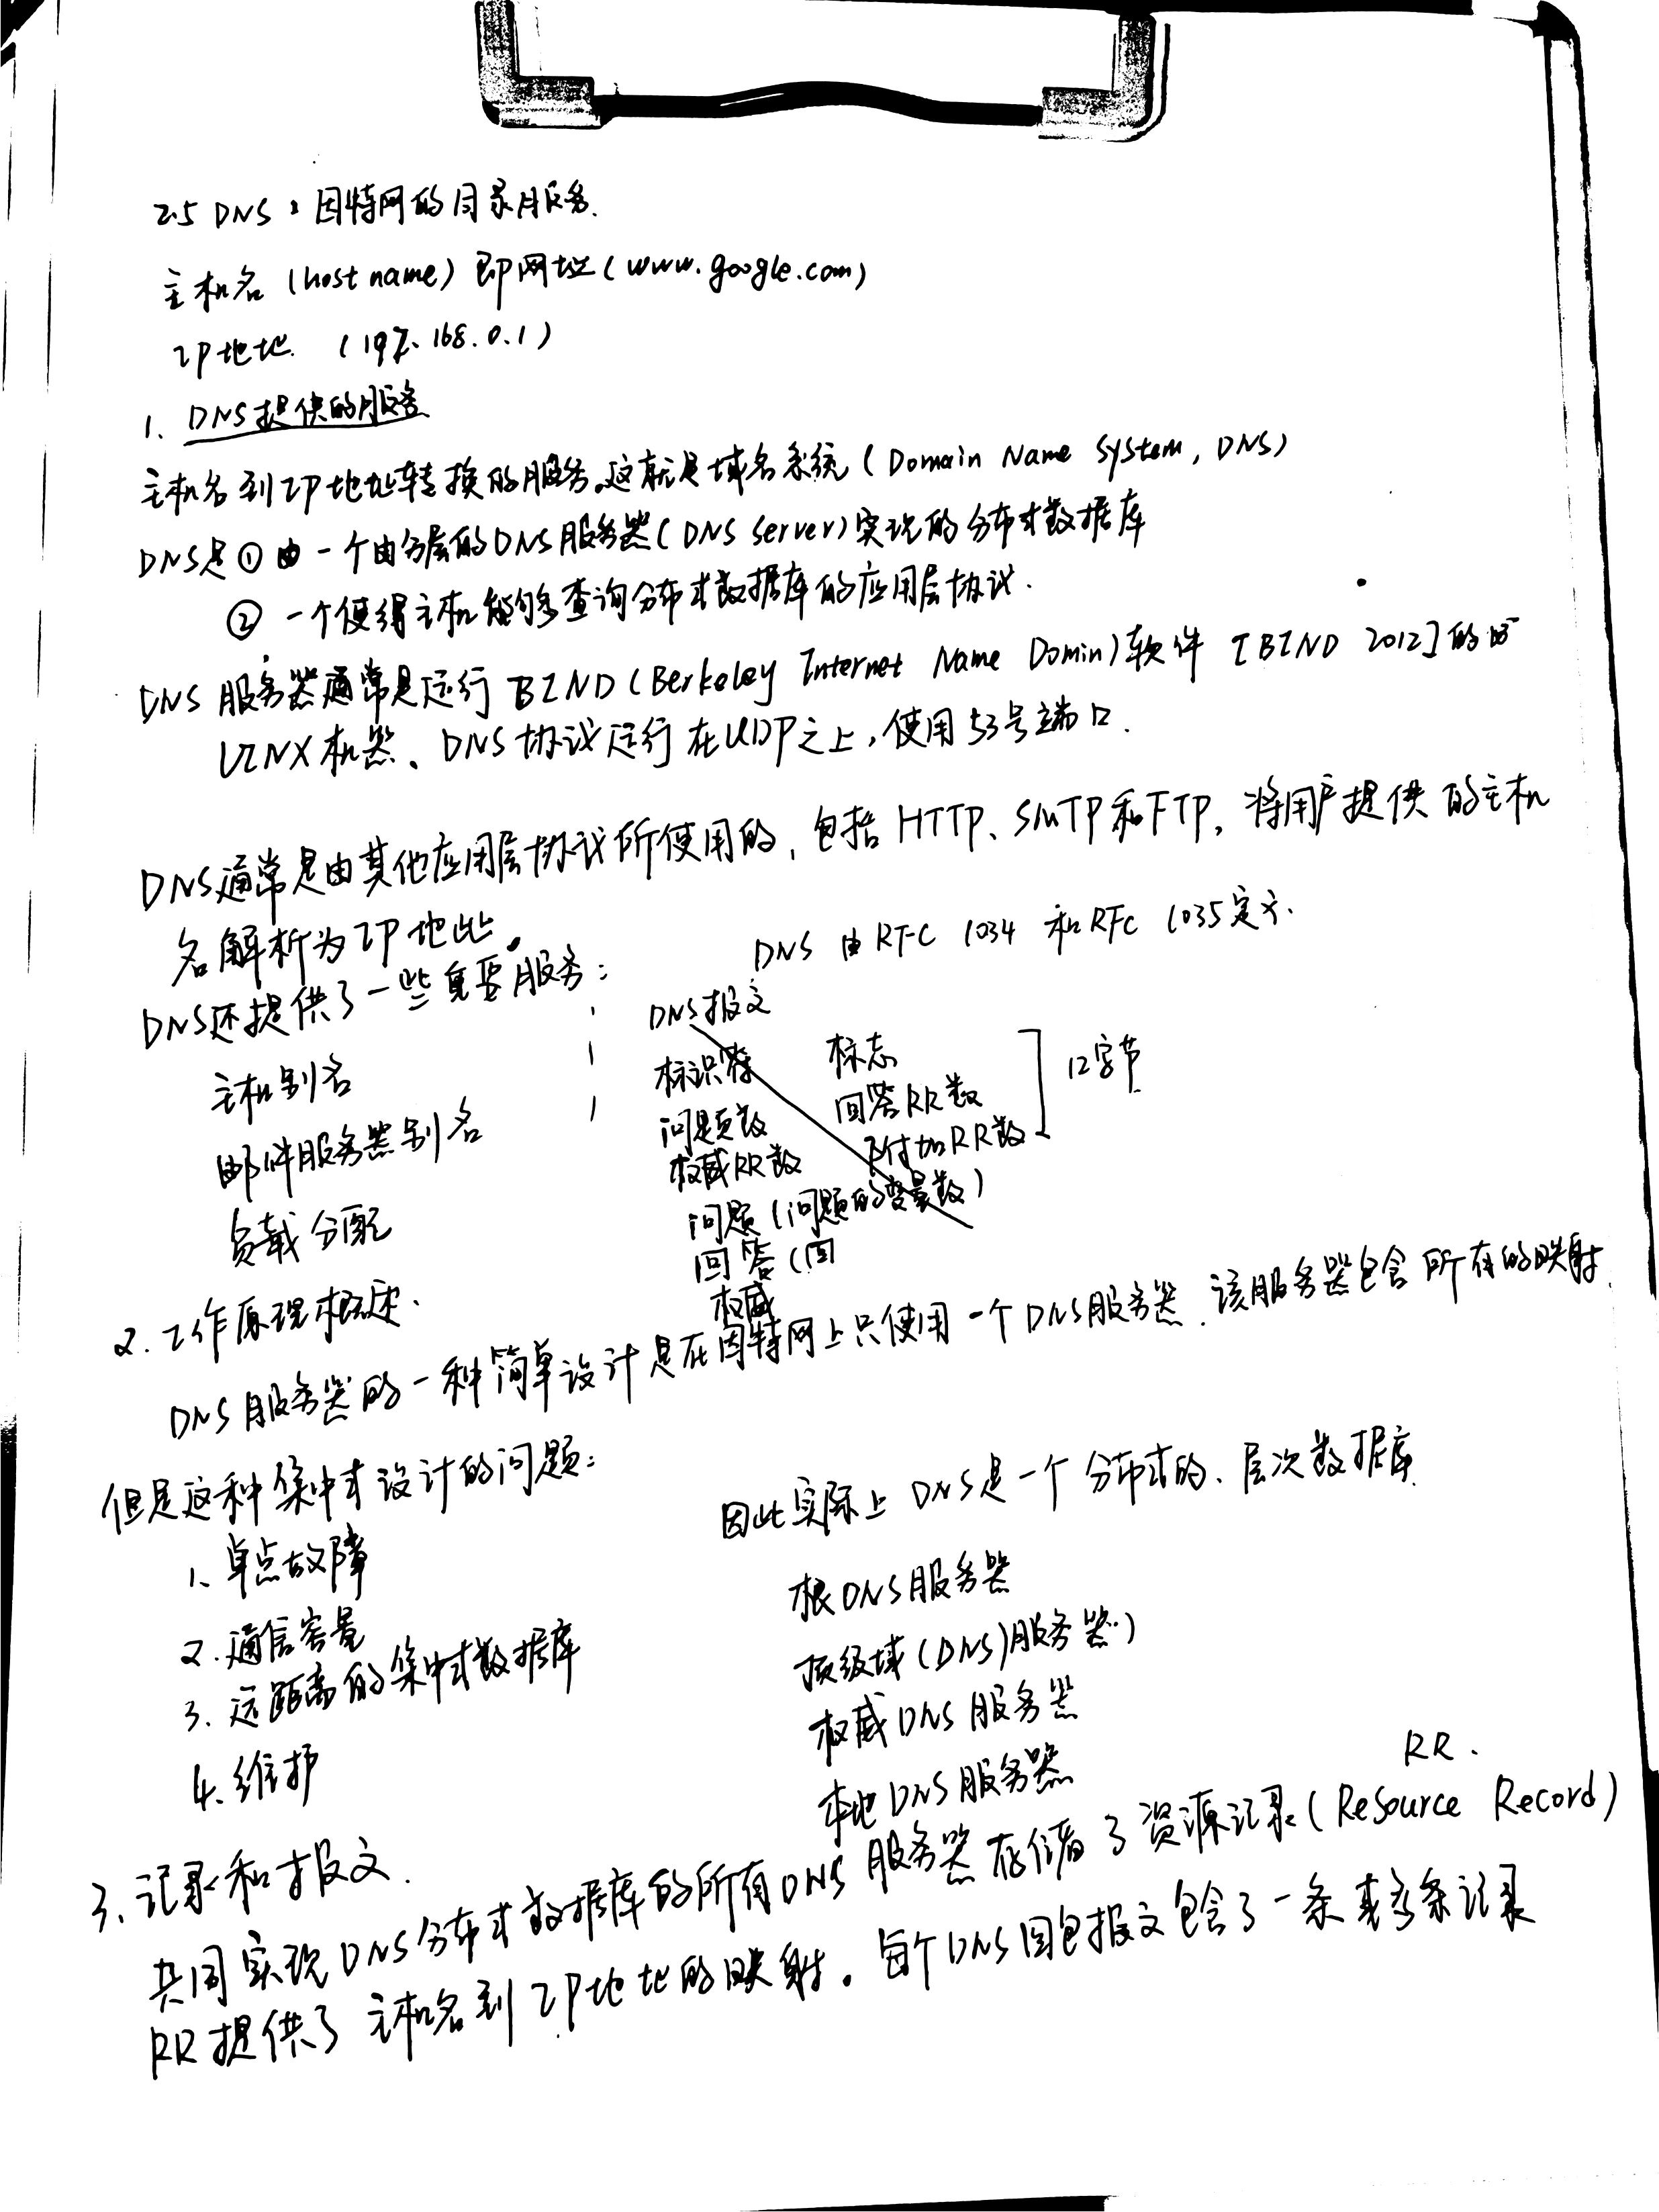 2.5 DNS：因特网的目录服务.
主机名 (host name) 即网址 (www.google.com)
IP地址. (192.168.0.1)
1. DNS提供的服务
主机名到IP地址转换的服务。这就是域名系统 (Domain Name System, DNS)
DNS是 ① 由一个由分层的DNS服务器 (DNS server) 实现的分布式数据库
② 一个使得主机能够查询分布式数据库的应用层协议.
DNS 服务器通常是运行 BIND (Berkeley Internet Name Domin) 软件 [BIND 2012] 的
UINX 机器。DNS协议运行在UDP之上, 使用53号端口.
DNS通常是由其他应用层协议所使用的, 包括 HTTP、SMTP和FTP, 将用户提供的主机
名解析为IP地址.
DNS 由 RFC 1034 和 RFC 1035定义.
DNS还提供了一些重要服务:
主机别名
邮件服务器别名
负载分配
DNS报文
标识符 标志
问题数 回答RR数
权威RR数 附加RR数
12字节
问题 (问题的变量数)
回答 (回
权威
2. 工作原理概述.
DNS服务器的一种简单设计是在因特网上只使用一个DNS服务器. 该服务器包含所有的映射.
但是这种集中式设计的问题:
1、单点故障
2. 通信容量
3. 远距离的集中式数据库
4. 维护
因此实际上 DNS是一个分布式的、层次数据库.
根DNS服务器
顶级域 (DNS) 服务器)
权威DNS服务器
本地DNS服务器
3、记录和报文.
RR.
共同实现DNS分布式数据库的所有DNS服务器存储着了资源记录 (Resource Record)
RR提供了主机名到IP地址的映射。每个DNS回包报文包含了一条或多条记录